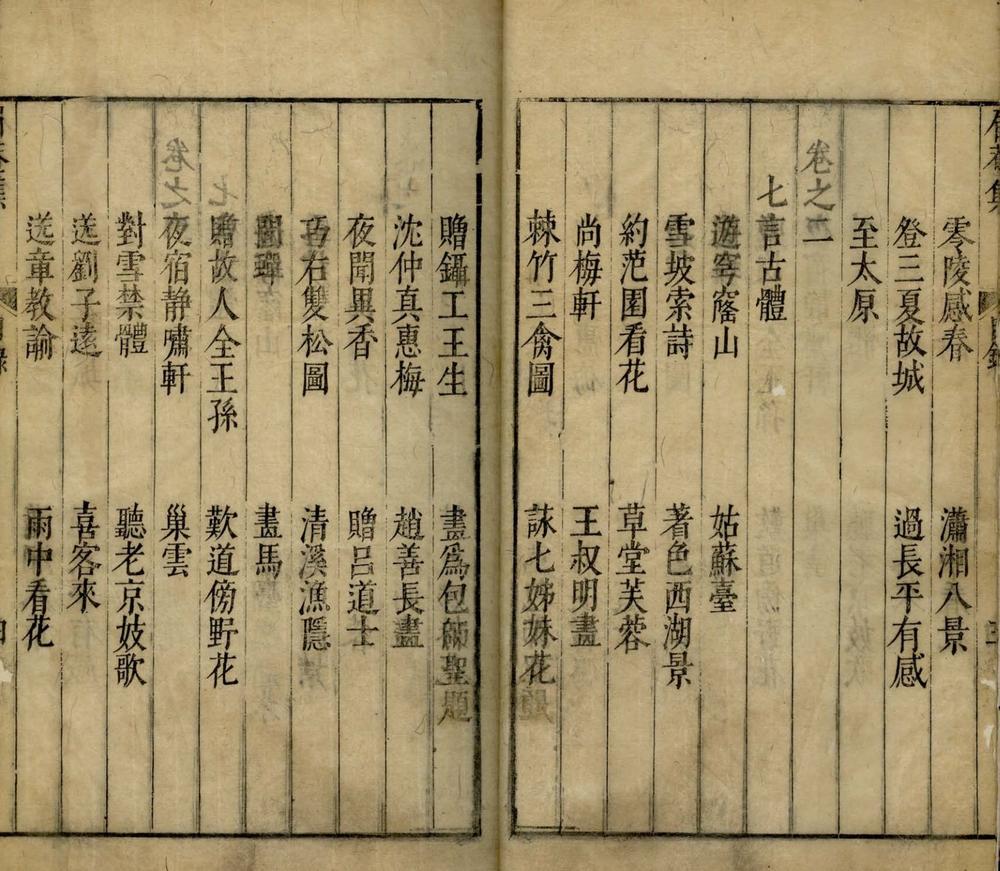 零陵感春　瀟湘八景
登三夏故城　過長平有感
至太原
卷之二
七言古體
遊穹窿山　姑蘇臺
雪坡索詩　著色西湖景
約范園看花　草堂芙蓉
尚梅軒　王叔明畫
棘竹三禽圖　詠七姊妹花
贈鑷工王生　畫為包師聖題
沈仲真惠梅　趙善長畫
夜聞異香　贈呂道士
古雙松圖　清溪漁隱
畫馬
贈故人全王孫　歎道傍野花
夜宿静嘯軒　巢雲
對雪禁體　聽老京妓歌
送劉子遠　喜客來
送童教諭　雨中看花